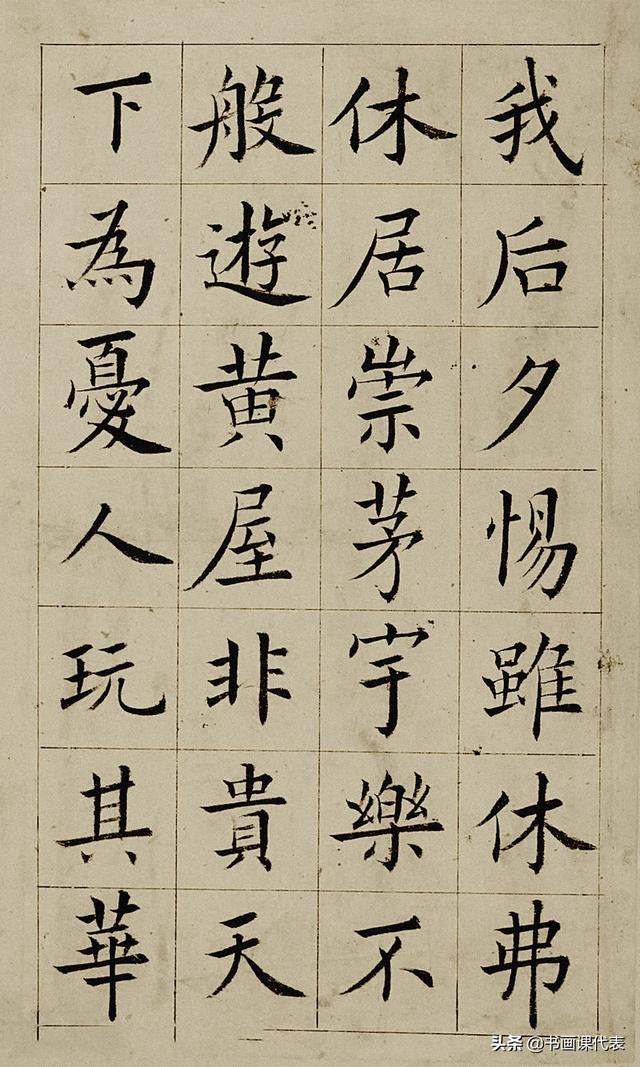 我后夕惕雖休弗
休居崇茅宇樂不
般遊黃屋非貴天
下為憂人玩其華
头条 @书画课代表